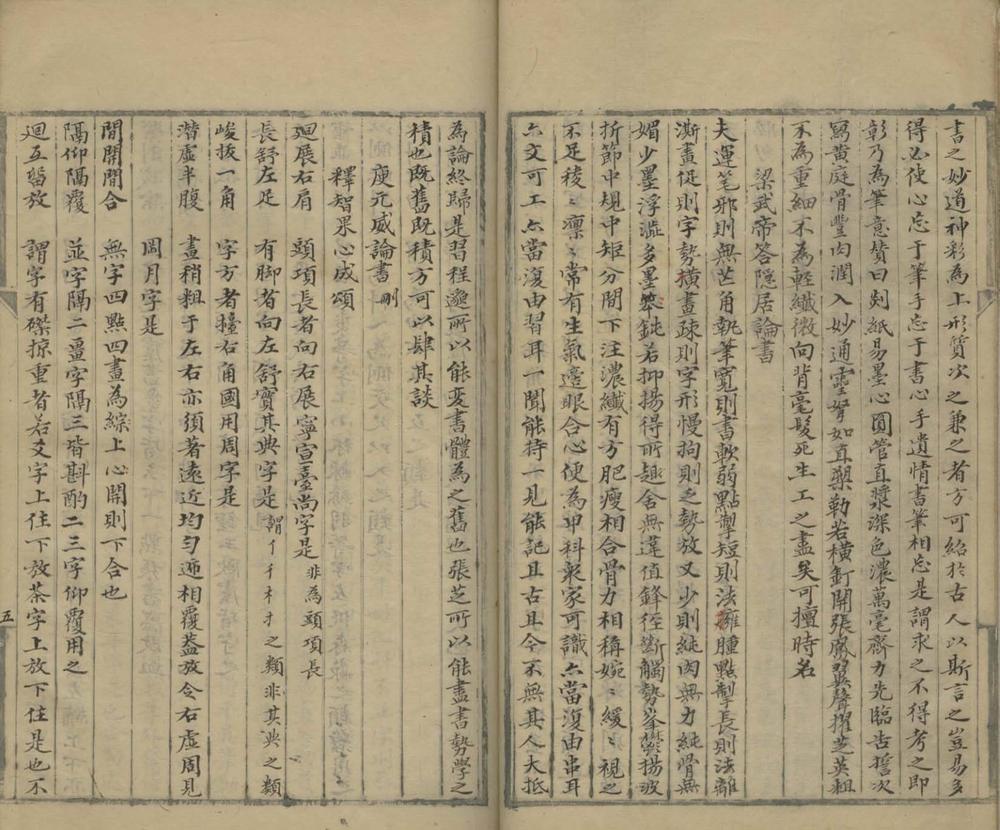 書之妙道神彩為上形質次之兼之者方可紹於古人以斯言之豈易多
得必使心忘于筆手忘于書心手遺情書筆相忘是謂求之不得考之即
彰乃為筆意賛曰剡紙易墨心圓管直漿深色濃萬毫齊力先臨告誓次
寫黄庭骨豐肉潤入妙通靈努如直槊勒若横釘開張鳳翼聳擢芝英粗
不為重細不為輕纖微向背毫髮死生工之盡矣可擅時名
梁武帝答隱居論書
夫運笔邪則無芒角執筆寛則書軟弱點掣短則法擁腫點掣長則法離
澌畫促則字勢横畫疎則字形慢拘則乏勢放又少則純肉無力純骨無
媚少墨浮澁多墨笨鈍若抑揚得所趣舍無違值鋒徑斷觸勢峯欝揚波
折節中規中矩分間下注濃纖有方肥瘦相合骨力相稱婉〻緩〻視之
不足稜〻凛〻常有生氣適眼合心便為甲科衆家可識亦當復由串耳
六文可工亦當復由習耳一聞能持一見能記且古且今不無其人大抵
為論終歸是習程邈所以能变書體為之舊也張芝所以能盡書勢學之
積也既舊既積方可以肆其談
庾元威論書 刪
釋智果心成頌
廻展右肩 頸項長者向右展寧宣臺尚字是 非為頸項長
長舒左足 有脚者向左舒寳其典字是 謂亻彳礻扌之類非其典之類
峻拔一角 字方者擡右角國用周字是
潛虚半腹 畫稍粗于左右亦須著遠近均匀逓相覆蓋放令右虚周見
岡月字是
間開間合 無字四點四畫為縱上心開則下合也
隔仰隔覆 並字隔二畺字隔三皆斟酌二三字仰覆用之
廻互留放 謂字有磔掠重者若爻字上住下放茶字上放下住是也不
五